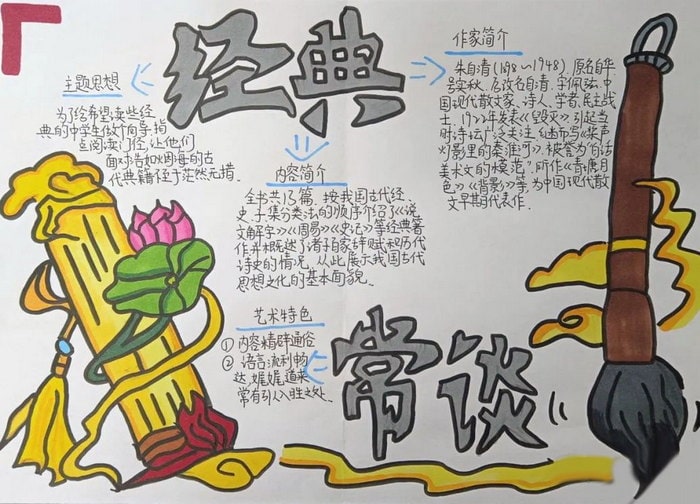 经典
主题思想
为了给希望读些经
典的中学生做个向导,指
点阅读门径,让他们
面对浩如烟海的古
代典籍不至于茫然无措.
作家简介
朱自清(1898~1948),原名自华
号实秋,后改名自清,字佩弦.中
国现代散文家、诗人、学者、民主战
士,1922年发表《毁灭》引起当
时诗坛广泛关注,继而写《桨声
灯影里的秦淮河》,被誉为“白话
美术文的模范”.所作《荷塘月
色》《背影》等,为中国现代散
文早期代表作.
内容简介
全书共13篇,按我国古代经、
史、子、集分类法的顺序介绍了《说
文解字》《周易》《史记》等经典著
作,并概述了诸子百家、辞赋和历代
诗史的情况,从此展示我国古代
思想文化的基本面貌.
艺术特色
① 内容精辟通俗
② 语言流利畅
达,娓娓道来
常有引人入胜之处.
常谈